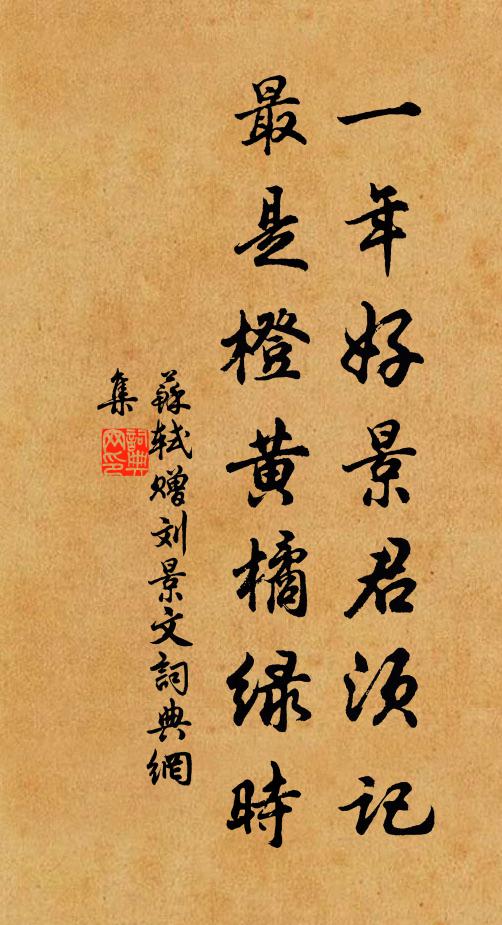 一年好景君须记
最是橙黄橘绿時
蘇轼赠刘景文詞典網
集
詞典网印